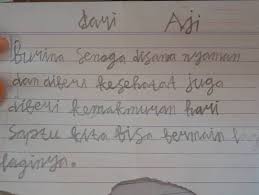 dari Aji
Burina Senoga disana nyaman
dan diberi kesehatat juga
diberi kemakmuran hari
Saptu kita bisa bermain lag
laginya.